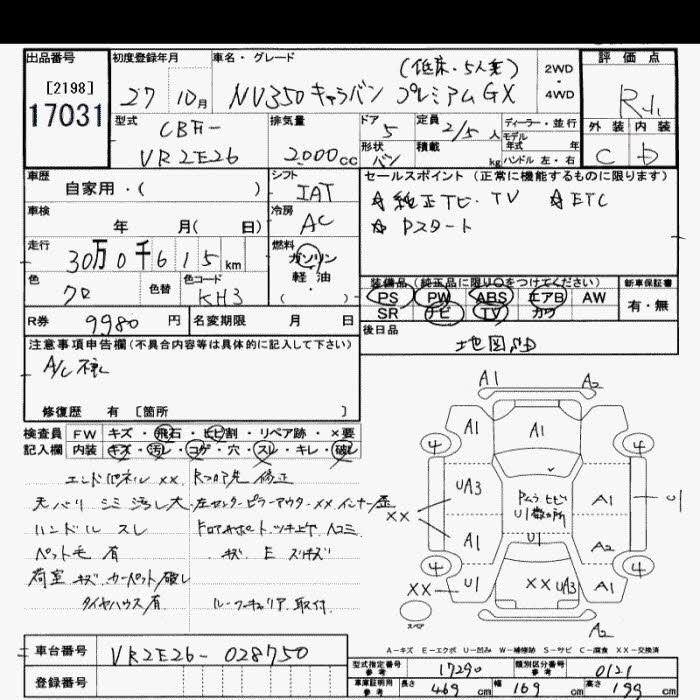 出品番号
[2198]
17031
初度登録年月
27 10月
車名・グレード
(低床・5人乗)
NV350 キャラバン プレミアムGX
2WD
4WD
評価点
外装 内装
C D
型式
CBF-
VR2E26
排気量
2000cc
ドア
5
形状
バン
定員
2/5人
積載
kg
ディーラー・並行
モデル
年式 年
ハンドル 左・右
車歴
自家用・( )
車検
年 月( 日)
走行
30万0千615km
色
クロ
色替
色コード
KH3
シフト
IAT
冷房
AC
燃料
ガソリン
軽・油
( )
セールスポイント(正常に機能するものに限ります)
☆純正ナビ・TV ☆ETC
☆Pスタート
装備品(純正品に限り○をつけてください)
PS PW ABS エアB AW
SR ナビ TV カワ
新車保証書
有・無
後日品
R券 9980円
名変期限 月 日
注意事項申告欄(不具合内容等は具体的に記入して下さい)
修復歴 有 [箇所 ]
検査員
記入欄
FW キズ・飛石・ヒビ割・リペア跡・×要
内装 キズ・汚レ・コゲ・穴・スレ・キレ・破レ
エンドパネル XX
天バリ シミ 汚レ大
ハンドル スレ
ペット毛 有
荷室 キズ カーペット/破レ
タイヤハウス有
左センターピラーアウタ・XX インナー/歪
ルーフキャリア 取付
A1 A2
A1 A1
4 4
UA3
Pムラ ヒビ
A1
U1
XX
A1 U1 A2
4 4
XX U1 XX UA3 A1
スペア
A2
A-キズ E-エクボ U-凹み W-補修跡 S-サビ C-腐食 XX-交換済
車台番号 VR2E26-028750
登録番号
型式指定番号
参考
17290
類別区分番号
参考
0121
車庫証明用
参考
長さ 469cm 幅 169cm 高さ 199cm